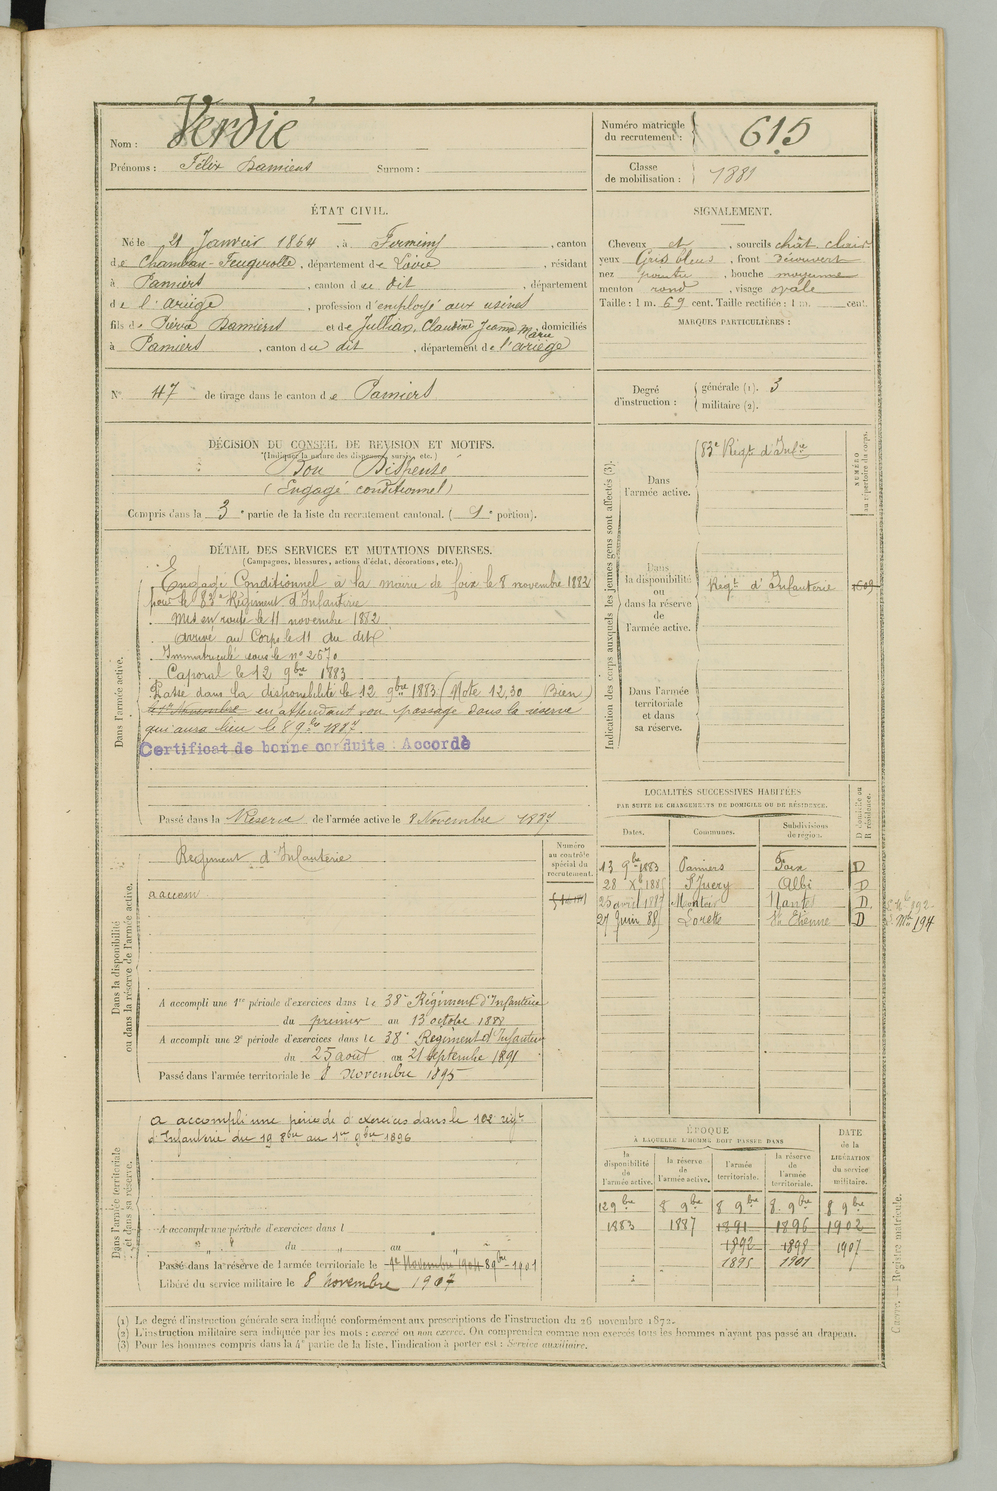 Nom : Verdié
Prénoms : Félix Damiens Surnom :
Numéro matricule du recrutement : 615
Classe de mobilisation : 1881
ÉTAT CIVIL.
Né le 21 Janvier 1864, à Firminy, canton
de Chambon-Feugerolle, département de Loire, résidant
à Pamiers, canton du dit, département
de l'ariège, profession d'employé aux usines
fils de Pierre Damiens et de Jullian, Claudine Jeanne Marie domiciliés
à Pamiers, canton du dit, département de l'ariège
N° 47 de tirage dans le canton de Pamiers
SIGNALEMENT.
Cheveux et, sourcils chât. clair
yeux Gris bleus, front découvert
nez pointu, bouche moyenne
menton rond, visage ovale
Taille : 1 m. 69 cent. Taille rectifiée : 1 m. cent.
MARQUES PARTICULIÈRES :
Degré d'instruction : générale (1). 3
militaire (2).
DÉCISION DU CONSEIL DE REVISION ET MOTIFS.
(Indiquer la nature des dispenses, sursis, etc.)
Bon Dispensé
(Engagé conditionnel)
Compris dans la 3e partie de la liste du recrutement cantonal. (1e portion).
DÉTAIL DES SERVICES ET MUTATIONS DIVERSES.
(Campagnes, blessures, actions d'éclat, décorations, etc.)
Dans l'armée active.
Engagé Conditionnel à la mairie de foix le 8 novembre 1882
pour le 83e Régiment d'Infanterie
Mis en route le 11 novembre 1882
arrivé au Corps le 11 du dit
Immatriculé sous le n° 2670
Caporal le 12 9bre 1883
Passé dans la disponibilité le 12 9bre 1883 (Note 12,30 Bien)
en attendant son passage dans la réserve
qui aura lieu le 8 9bre 1887.
Certificat de bonne conduite : Accordé
Passé dans la Réserve de l'armée active le 8 Novembre 1887
Indication des corps auxquels les jeunes gens sont affectés (3).
NUMÉRO au répertoire du corps.
Dans l'armée active.
83e Régt d'Infie
Dans la disponibilité ou dans la réserve de l'armée active.
Régt d'Infanterie
Dans l'armée territoriale et dans sa réserve.
LOCALITÉS SUCCESSIVES HABITÉES
PAR SUITE DE CHANGEMENTS DE DOMICILE OU DE RÉSIDENCE.
Dates. Communes. Subdivisions de région. D domicile ou R résidence.
13 9bre 1883 Pamiers Foix D
28 Xbre 1885 St Juery Albi D
25 avril 1887 Montoir Nantes D.
27 Juin 88 Lorette St Etienne D
Dans la disponibilité ou dans la réserve de l'armée active.
Numéro au contrôle spécial du recrutement.
Régiment d'Infanterie
a accom
A accompli une 1re période d'exercices dans le 38e Régiment d'Infanterie
du premier au 13 octobre 1888
A accompli une 2e période d'exercices dans le 38e Régiment d'Infanterie
du 25 août au 21 Septembre 1891
Passé dans l'armée territoriale le 8 Novembre 1895
Dans l'armée territoriale et dans sa réserve.
a accompli une période d'exercices dans le 102 régt
d'Infanterie du 19 8bre au 1er 9bre 1896
A accompli une période d'exercices dans l
du au
Passé dans la réserve de l'armée territoriale le 1er Novembre 1904 8 9bre 1901
Libéré du service militaire le 8 Novembre 1907
ÉPOQUE
À LAQUELLE L'HOMME DOIT PASSER DANS
DATE de la LIBÉRATION du service militaire.
la disponibilité de l'armée active. la réserve de l'armée active. l'armée territoriale. la réserve de l'armée territoriale.
12 9bre 8 9bre 8 9bre 8 9bre 8 9bre
1883 1887 1891 1896 1902
1892 1898 1907
1895 1901
Carré. — Registre matricule.
(1) Le degré d'instruction générale sera indiqué conformément aux prescriptions de l'instruction du 26 novembre 1872.
(2) L'instruction militaire sera indiquée par les mots : exercé ou non exercé. On comprendra comme non exercés tous les hommes n'ayant pas passé au drapeau.
(3) Pour les hommes compris dans la 4e partie de la liste, l'indication à porter est : Service auxiliaire.